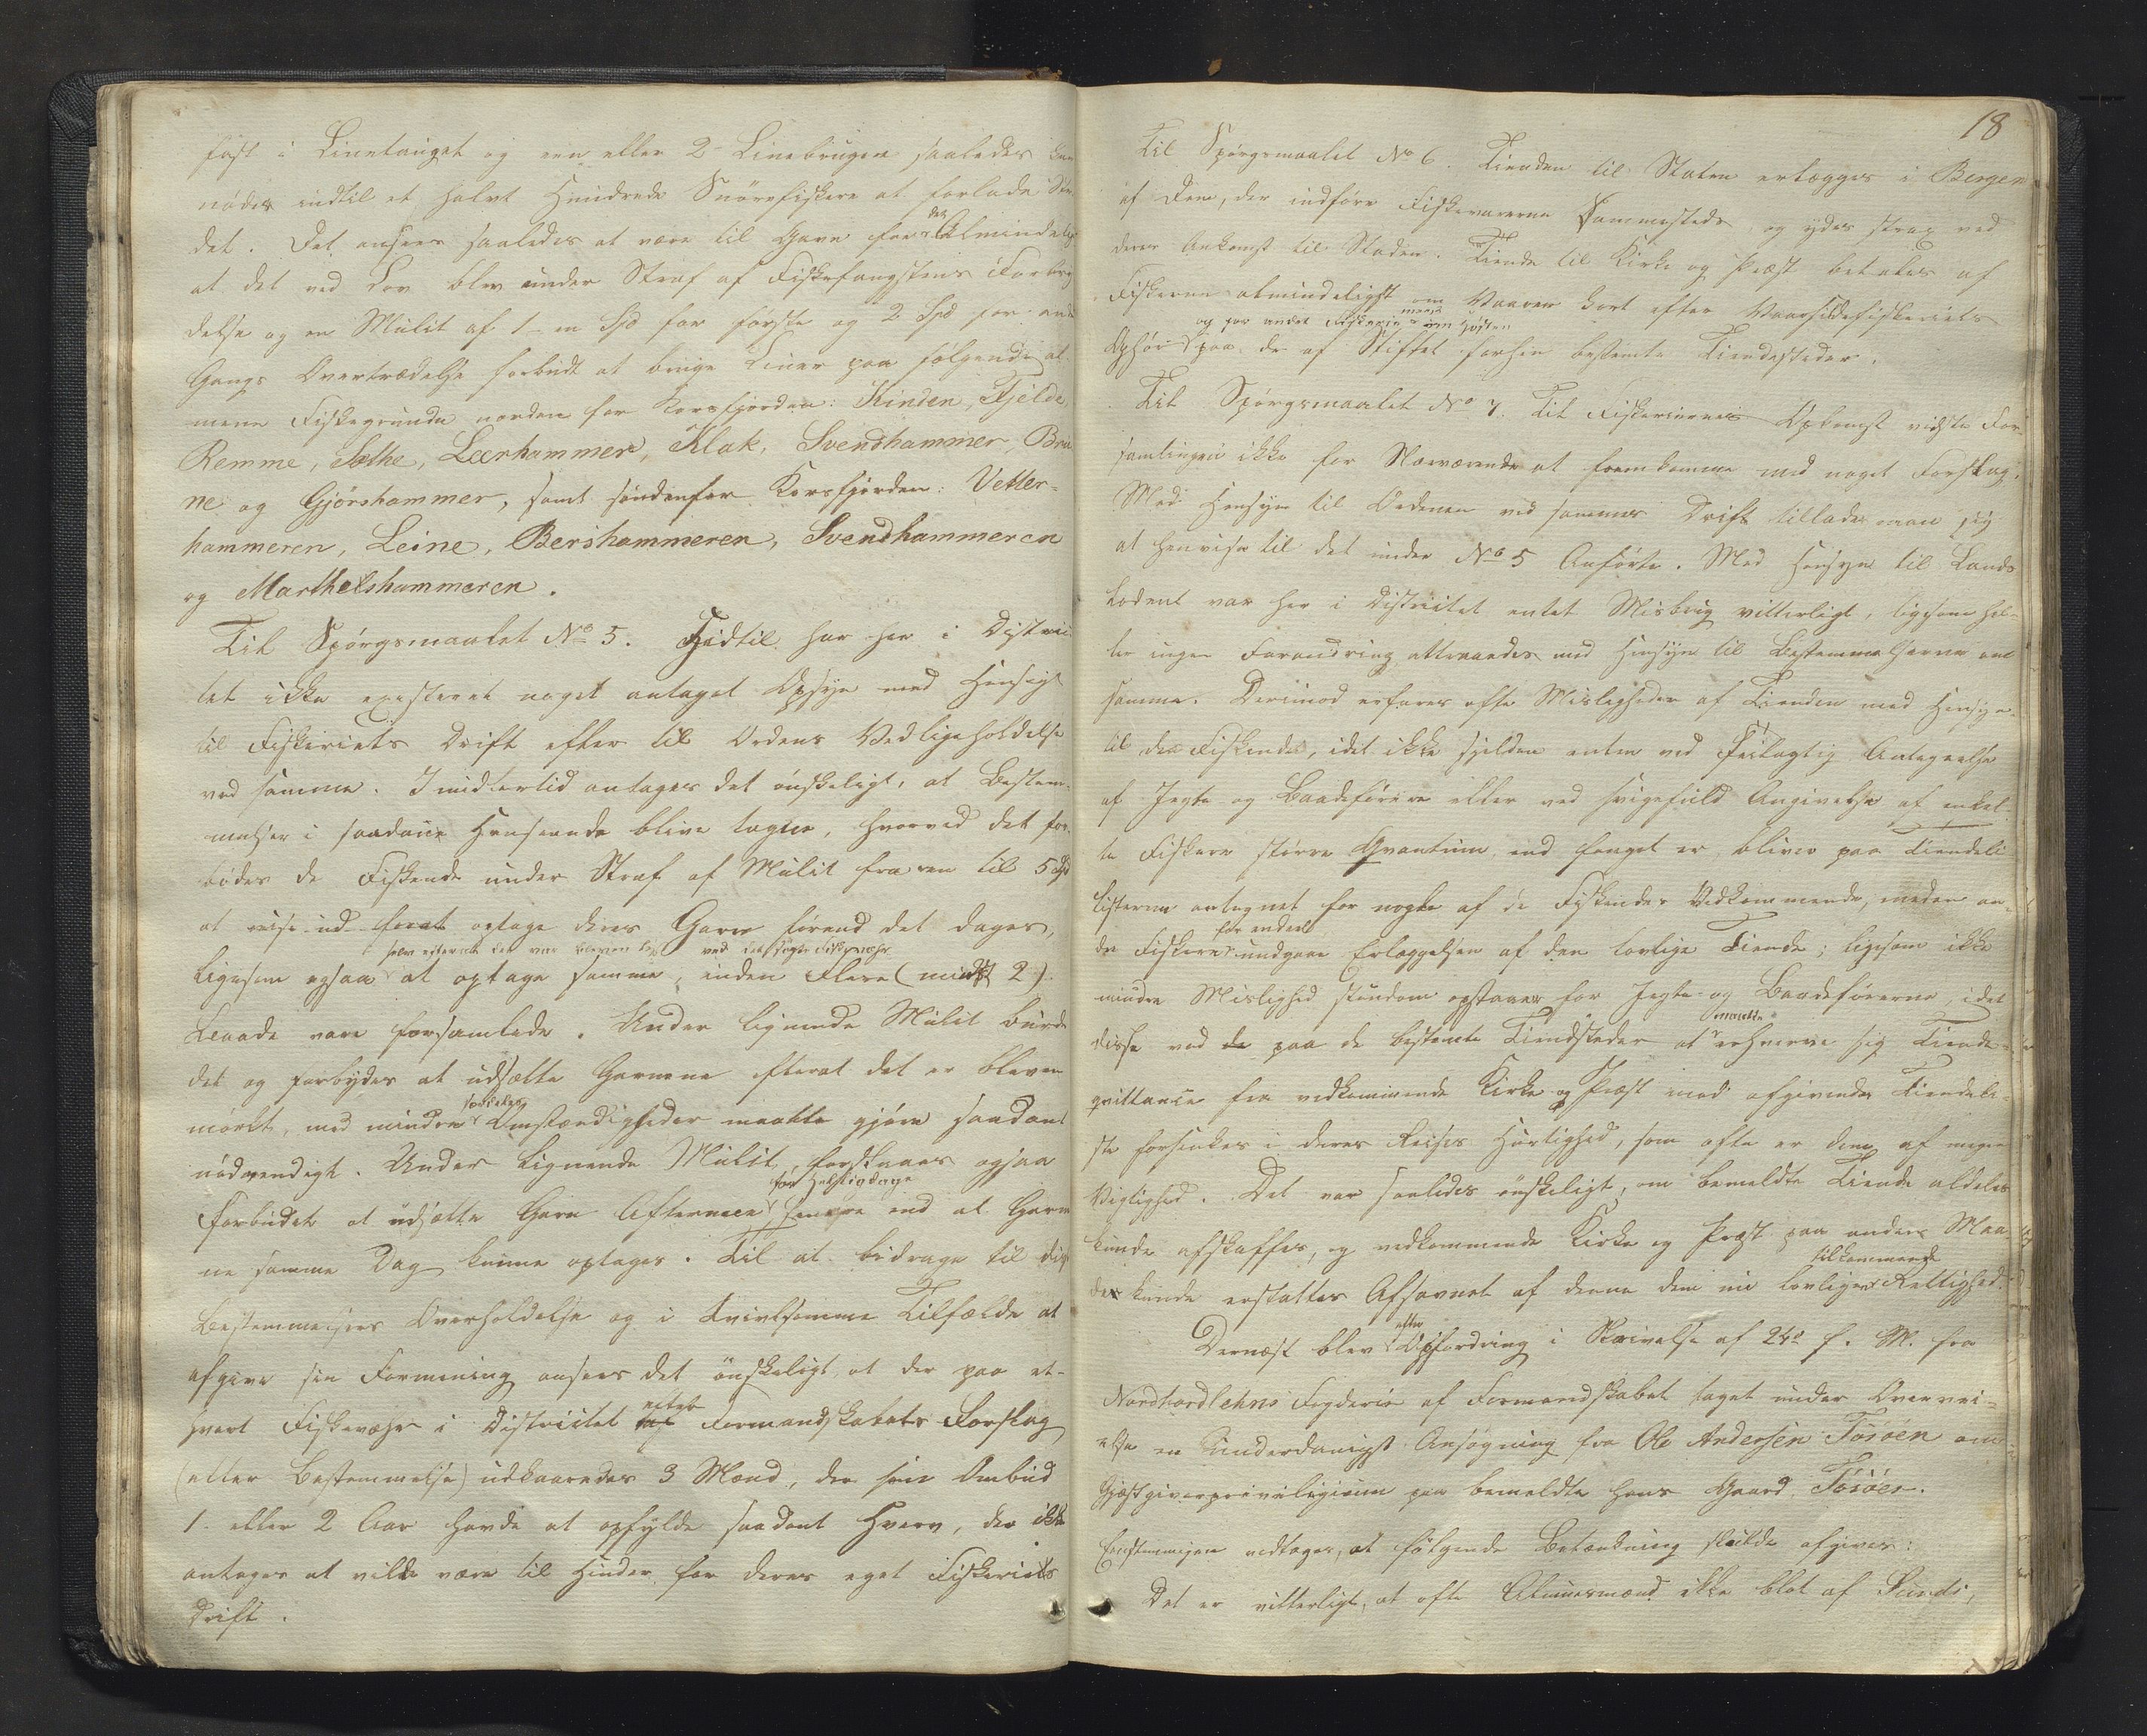 fast i Linetauget og een eller 2 Linebrugere saaledes kan
nødes indtil et halvt Hundrede Snörefiskere at forlade Stæ
det. Det ansees saaledes at være til Gavn for det Almindelige
at det ved Lov blev under Straf af Fiskefangstens Forbry
delse og en Mulct af 1 en Spd for første og 2 Spd for anden
Gangs Overtrædelse forbudt at bruge Liner paa følgende al
mene Fiskegrunde norden for Korsfjorden: Kinden, Fjelde,
Remme, Sæthe, Leerhammer, Klak, Svendhammer, Bru
ne og Gjörshammer, samt søndenfor Korsfjorden: Vetter-
hammeren, Leine, Bershammeren, Svendhammeren
og Marthelshammeren.
Til Spörgsmaalet No 5. Hidtil har her i Distric
tet ikke existeret noget antaget Opsyn med Hensigt
til Fiskeriets Drift eller til Ordens Vedligeholdelse
ved samme. Imidlertid antages det ønskeligt, at Bestem-
melser i saadan Henseende blive tagne, hvorved det for-
bødes de Fiskende under Straf af Mulct fra een til 5 Spd
at reise ud forat optage deres Garn førend det dages,
selv efterat det var bleven lyst ved det søgte Fiskevæhr
ligesom ogsaa at optage samme, inden Flere (mindst 2)
Baade vare forsamlede. Under lignende Mulct burde
det og forbydes at udsætte Garnene efterat det er bleven
mørkt, med mindre særdeles Omstændigheder maatte gjøre saadant
nødvendigt. Under lignende Mulct, forstaaes ogsaa
for Helligdage
Forbudet at udsætte Garn Aftenen senere end at Garne
ne samme Dag kunne optages. Til at bidrage til disse
Bestemmelsers Overholdelse og i tvivlsomme Tilfælde at
afgive sin Formening ansees det ønskeligt, at der paa et-
hvert Fiskevæhr i Districtet efter Formandskabets Forslag
(eller Bestemmelse) udkaaredes 3 Mænd, der som Ombud
1 eller 2 Aar havde at opfylde saadant Hverv, der ikke
antages at ville være til Hinder for deres eget Fiskeries
Drift.
18
Til Spörgsmaalet No 6. Tienden til Staten erlægges i Bergen
af Dem, der indføre Fiskevarerne sammesteds og ydes strax ved
deres Ankomst til Staden. Tiende til Kirke og Præst betales af
Fiskerne almindeligst om Vaaren kort efter Vaarsildefiskeriets
og for andet Fiskerie meest om Høsten
Ophør paa de af Stiftet forhen bestemte Tiendesteder.
Til Spörgsmaalet No 7. Til Fiskeriernes Opkomst vidste For-
samlingen ikke for Nærværende at fremkomme med noget Forslag.
Med Hensyn til Ordenen ved sammes Drift tillader man sig
at henvise til det under No 5 Anførte. Med Hensyn til Lands
lodent var her i Districtet intet Misbrug vitterligt, ligesom hel-
ler ingen Forandring attraaedes med Hensyn til Bestemmelserne om
samme. Derimod erfares ofte Misligheder af Tienden med Hensyn
til de Fiskende, idet ikke sjelden enten ved feilagtig Antegnelse
af Jegte og Baadeførere eller ved svigefuld Angivelse af enkel
te Fiskere større Qvantum end fanget er bliver paa Tiendeli
listerne antegnet for nogle af de Fiskende Vedkommende, meden an-
de Fiskere for endeel undgaae Erlæggelsen af den lovlige Tiende; ligesom ikke
mindre Mislighed stundom opstaaer for Jegte og Baadeførerne, idet
disse ved de paa de bestemte Tiendsteder at maatte erhverve sig Tiende-
qvittance fra vedkommende Kirke og Præst mod afgivende Tiendeli-
ste forsinkes i deres Reises Hurtighed, som ofte er dem af megen
Vigtighed. Det var saaledes ønskeligt, om bemeldte Tiende aldeles
kunde afskaffes, og vedkommende Kirke og Præst paa anden Maa
de kunde erstattes Afsavnet af denne dem nu lovligen tilkommende Rettighed.
Dernæst blev efter Opfordring i Skrivelse af 24de f. M. fra
Nordhordlehns Fogderie af Formandskabet taget under Overvei-
else en underdanigst Ansøgning fra Ole Andersen Tösöen om
Gjæstgiverprivilegium paa bemeldte hans Gaard Tösöen.
Eenstemmigen vedtoges, at følgende Betænkning skulde afgives:
Det er vitterligt, at ofte Almuesmænd ikke blot af Sunds,